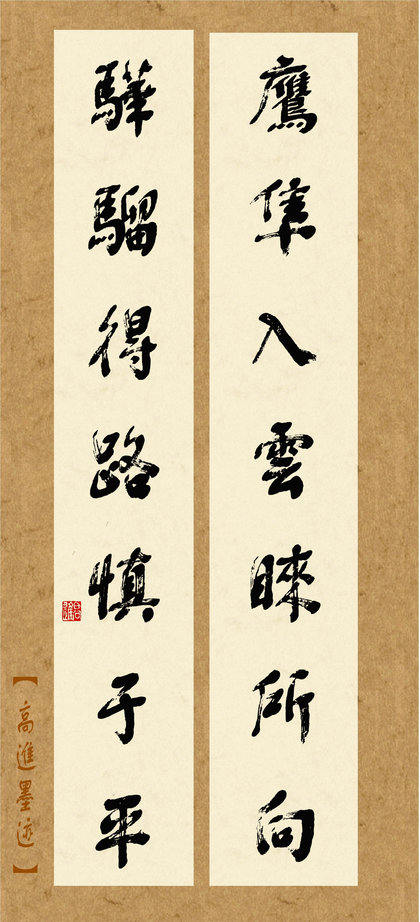 鷹隼入雲睞所向
驊騮得路慎于平
【高進墨迹】